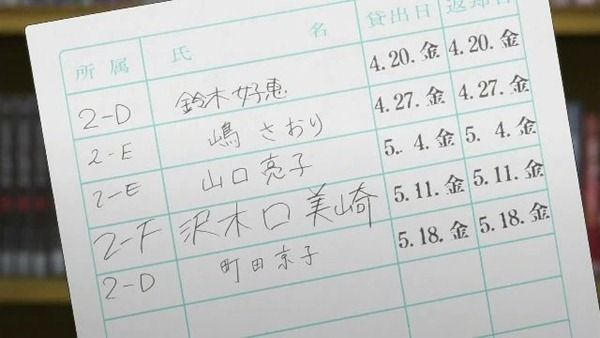 所属 氏 名 貸出日 返却日
2-D 鈴木好恵 4.20.金 4.20.金
2-E 嶋さおり 4.27.金 4.27.金
2-E 山口亮子 5. 4.金 5. 4.金
2-F 沢木口美崎 5.11.金 5.11.金
2-D 町田京子 5.18.金 5.18.金